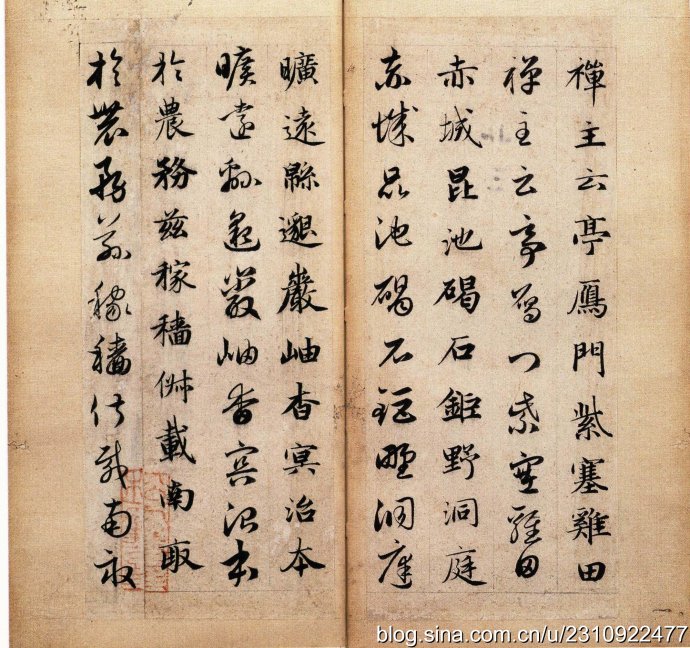 禪主云亭鴈門紫塞雞田
禪主云亭鴈門紫塞雞田
赤城昆池碣石鉅野洞庭
赤城昆池碣石鉅野洞庭
曠遠緜邈巖岫杳冥治本
曠遠緜邈巖岫杳冥治本
於農務茲稼穡俶載南畝
於農務茲稼穡俶載南畝
blog.sina.com.cn/u/2310922477